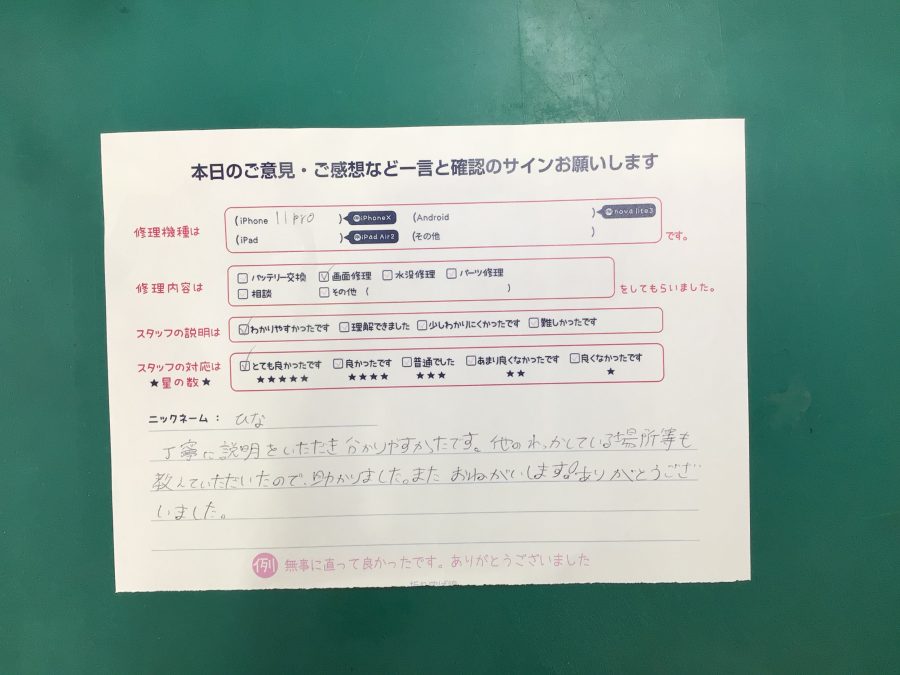 本日のご意見・ご感想など一言と確認のサインお願いします
修理機種は
(iPhone 11pro ) 例iPhoneX (Android ) 例nova lite3
(iPad ) 例iPad Air2 (その他 ) です。
修理内容は
バッテリー交換 画面修理 水没修理 パーツ修理
相談 その他 ( ) をしてもらいました。
スタッフの説明は わかりやすかったです 理解できました 少しわかりにくかったです 難しかったです
スタッフの対応は とても良かったです 良かったです 普通でした あまり良くなかったです 良くなかったです
★星の数★ ★★★★★ ★★★★ ★★★ ★★ ★
ニックネーム: ひな
丁寧に説明をいただき分かりやすかったです。他のわっかしている場所等も
教えていただいたので、助かりました。また おねがいします!ありがとうござ
いました。
例 無事に直って良かったです。ありがとうございました